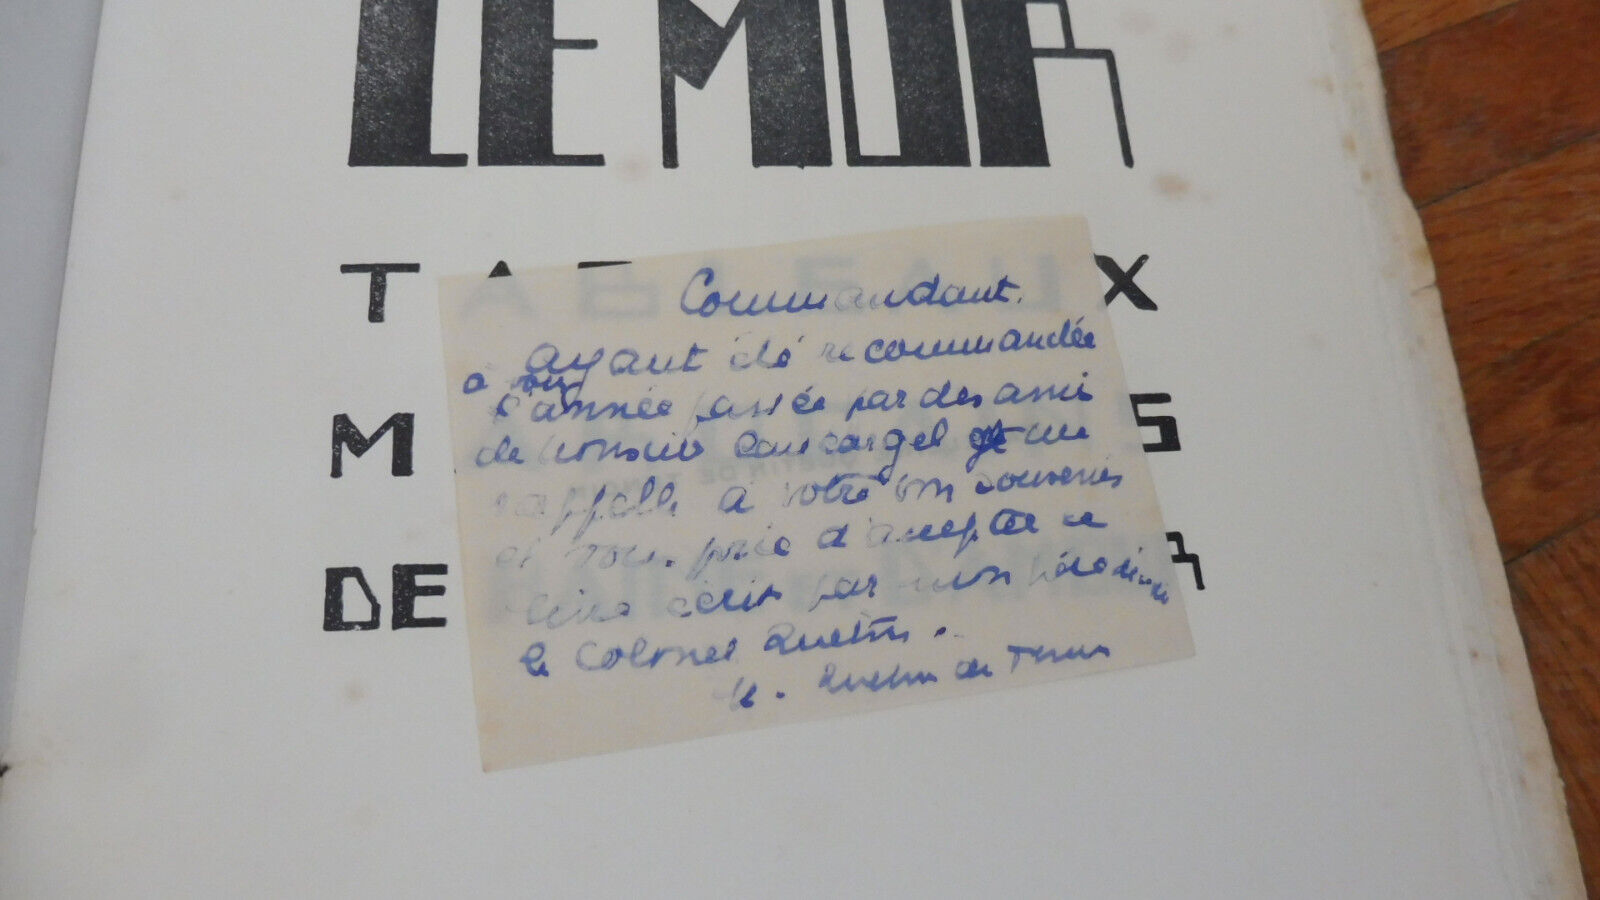 LEMOR
TAB X
M S
DE R
Commandant.
Ayant été recommandée
à vous
l'année passée par des amis
de monsieur je me
rappelle à votre bon souvenir
et vous prie d'accepter ce
livre écrit par mon père décédé
le Colonel Quetin.
M. Quetin de